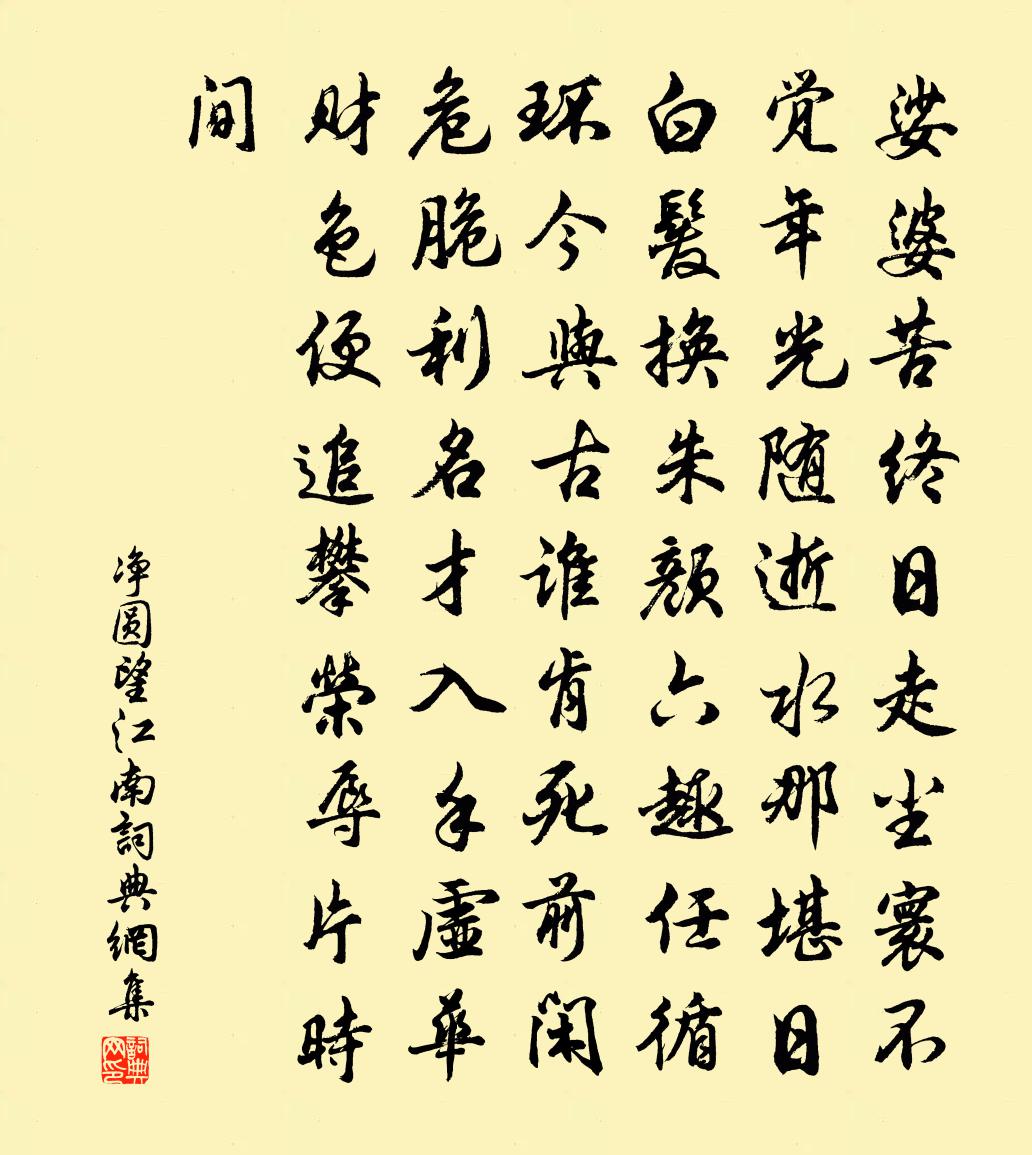 娑婆苦终日走尘寰不
觉年光随逝水那堪日
白髮换朱颜六趣任循
环今與古谁肯死前闲
危脆利名才入手虚華
财色便追攀榮辱片時
间
净圆望江南詞典網集
詞典网印